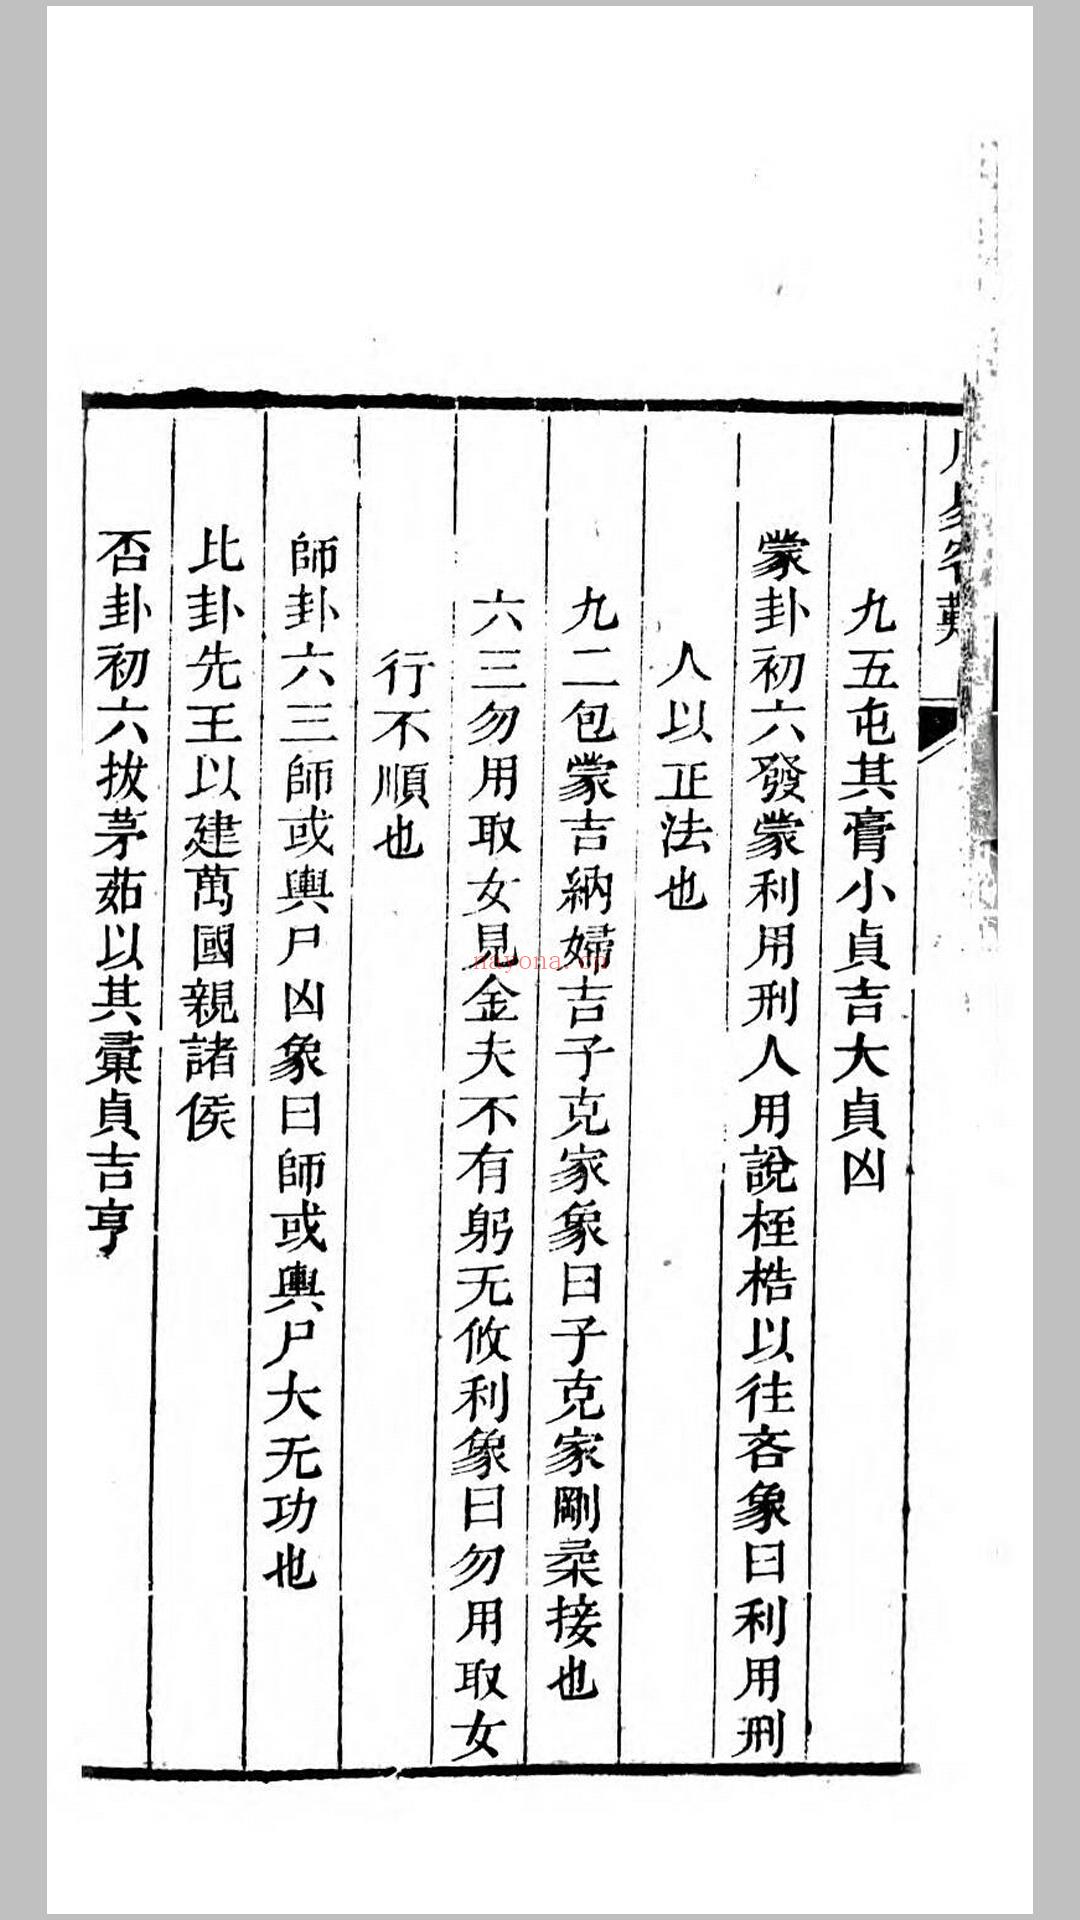 周易客難
九五屯其膏小貞吉大貞凶
蒙卦初六發蒙利用刑人用說桎梏以往吝象曰利用刑
人以正法也
九二包蒙吉納婦吉子克家象曰子克家剛柔接也
六三勿用取女見金夫不有躬无攸利象曰勿用取女
行不順也
師卦六三師或輿尸凶象曰師或輿尸大无功也
比卦先王以建萬國親諸侯
否卦初六拔茅茹以其彙貞吉亨
nayona.cn